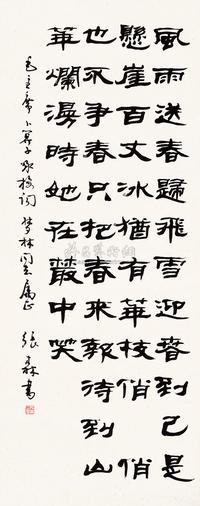 風雨送春歸飛雪迎春到已是
懸崖百丈冰猶有華枝俏俏
也不爭春只把春來報待到山
華爛漫時她在叢中笑
毛主席卜算子咏梅詞 梦林同志属正 張森書